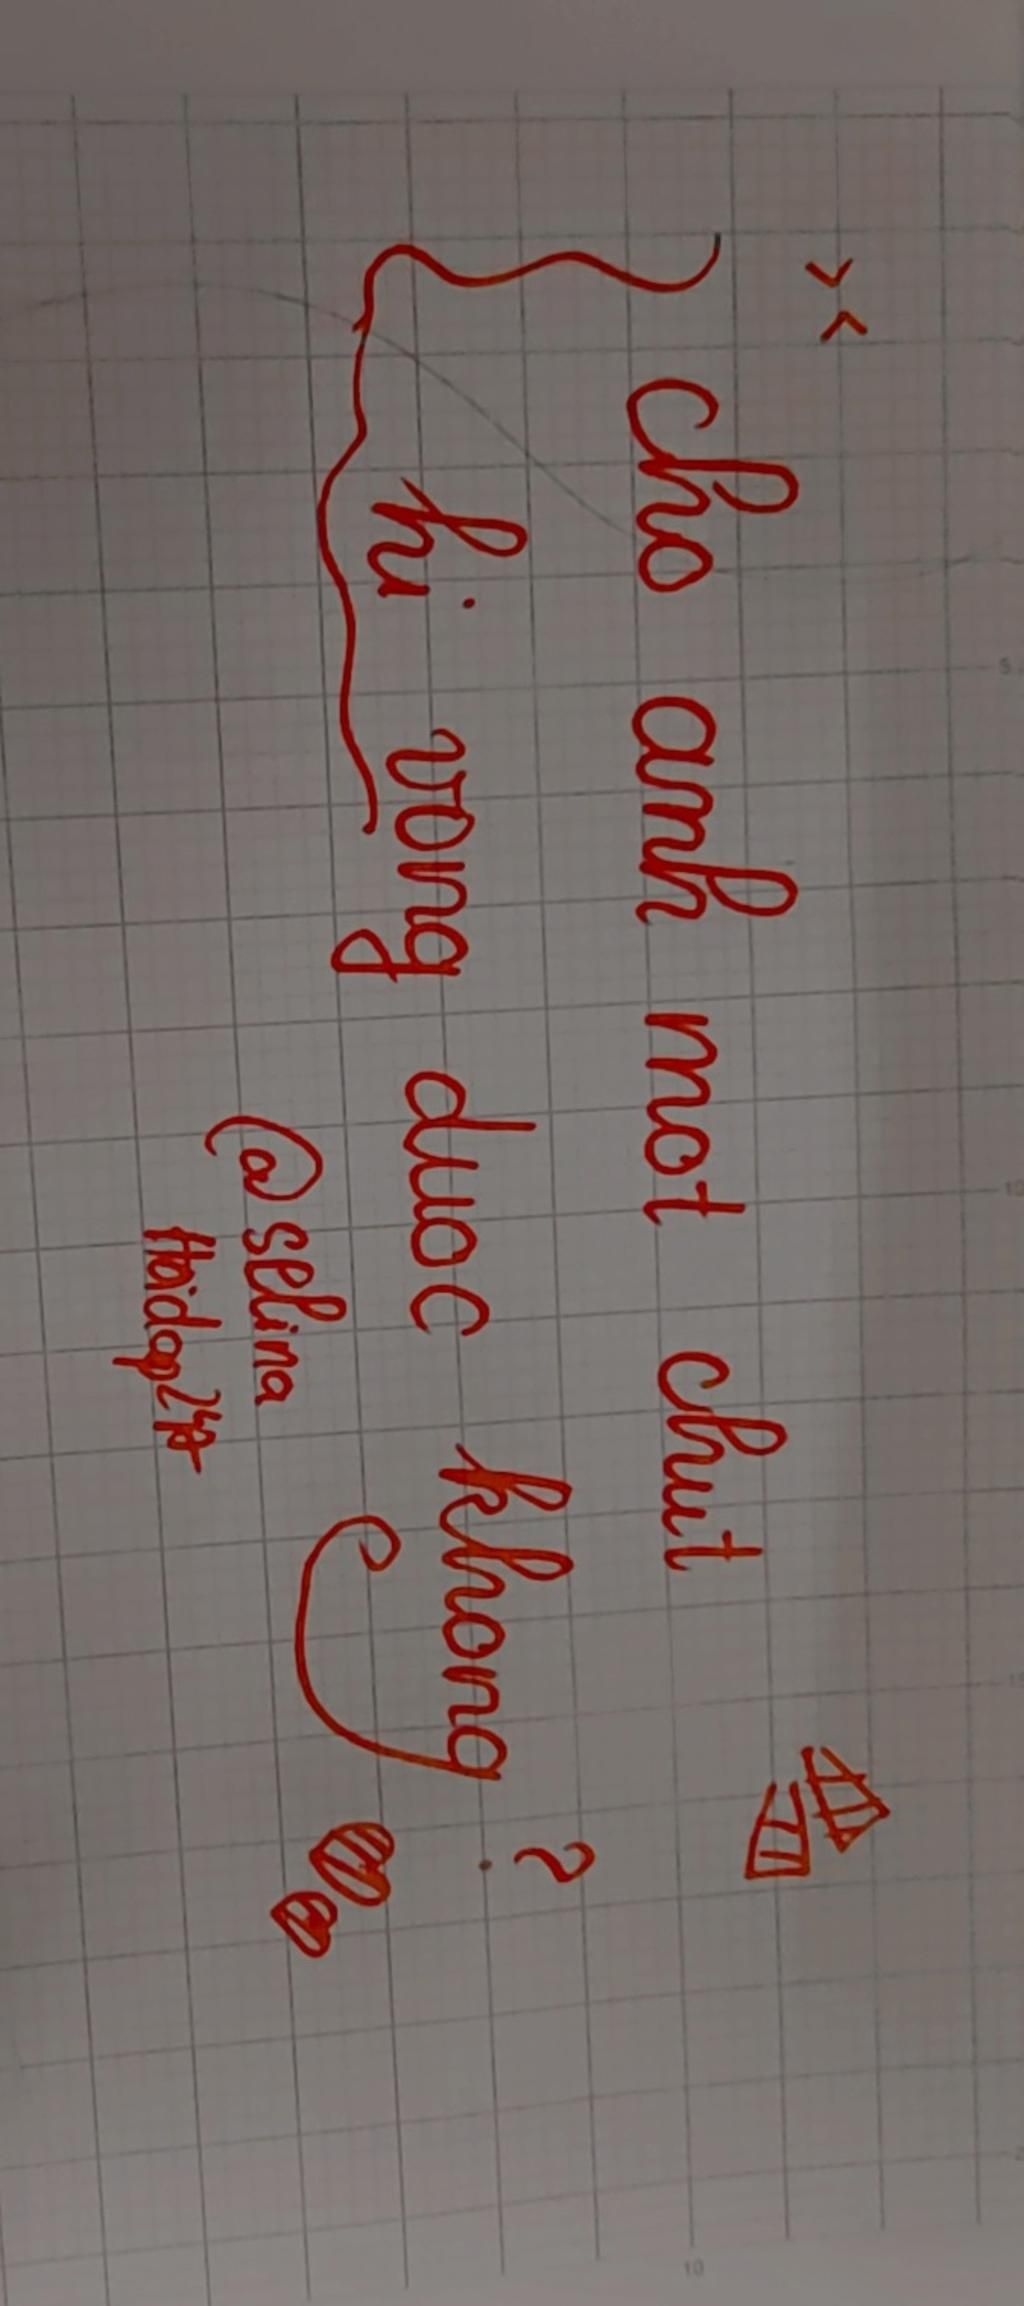 cho anh mot chut
hi vong duoc khong ?
@selina
Hoidap247